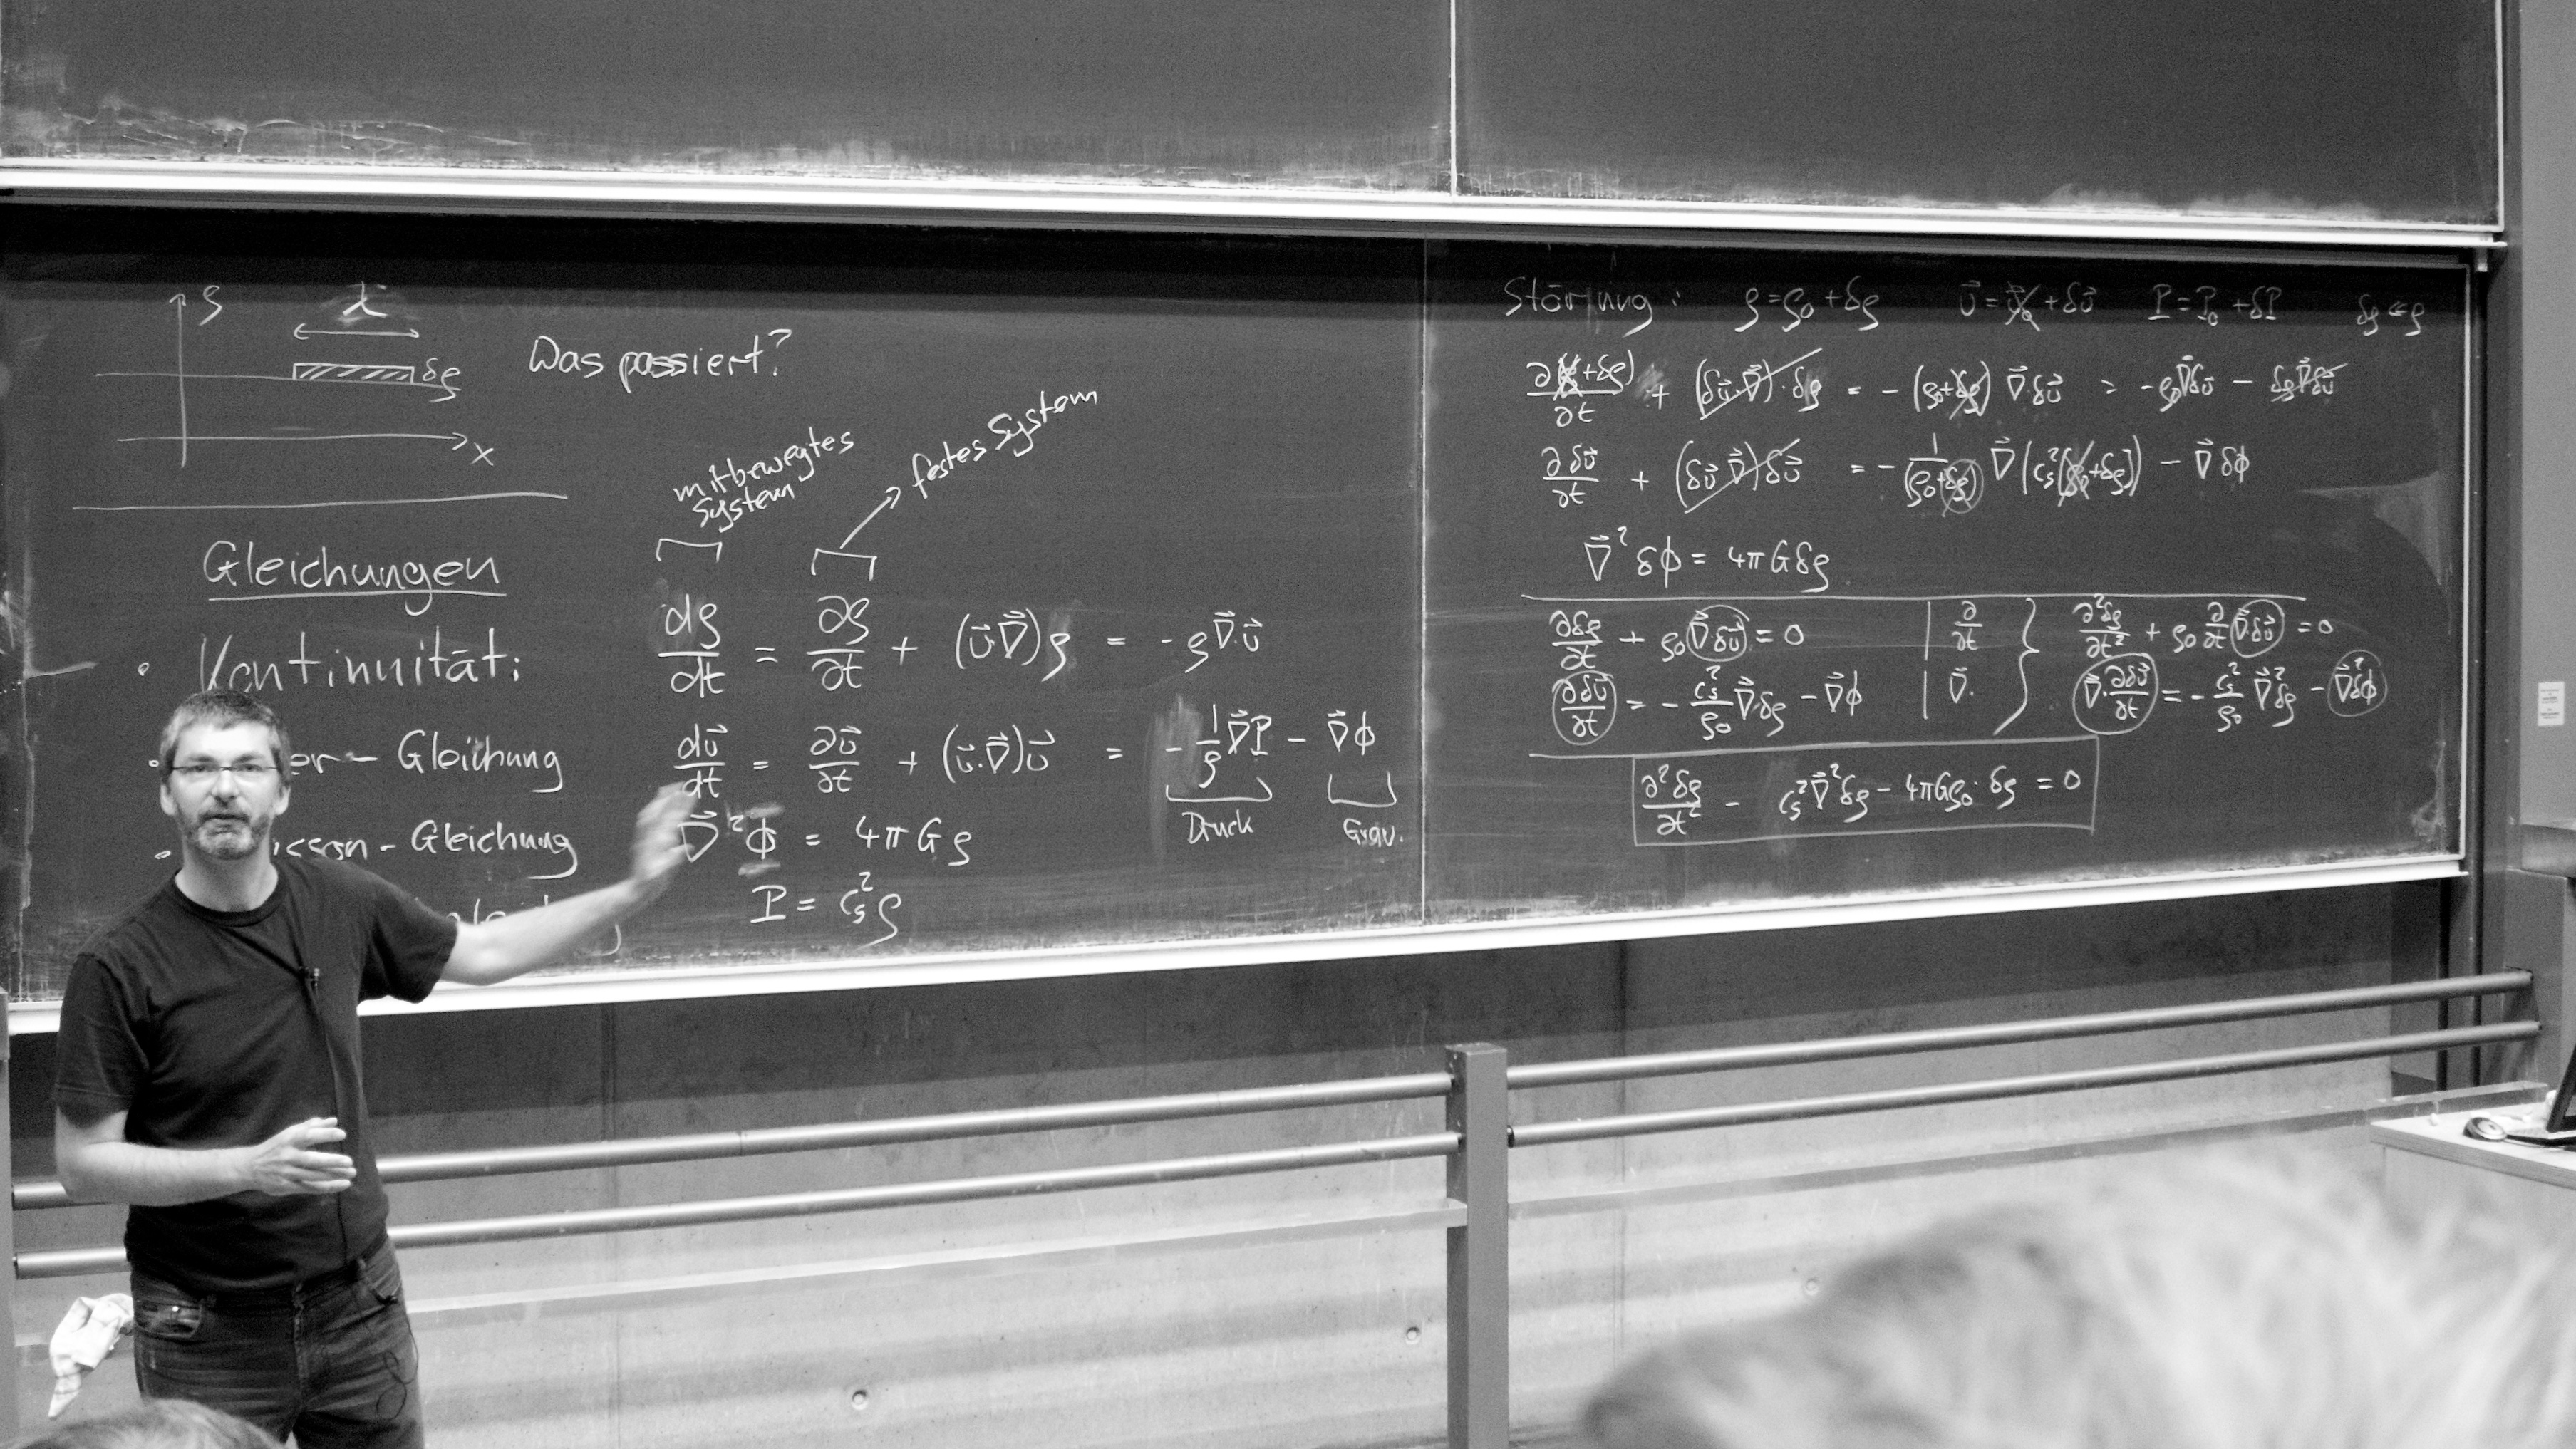 ρ
λ
δρ
x
Was passiert?
mitbewegtes
System
festes System
Gleichungen
• Kontinuität: dρ/dt = ∂ρ/∂t + (v⃗·∇⃗)ρ = - ρ∇⃗·v⃗
• Gleichung dv⃗/dt = ∂v⃗/∂t + (v⃗·∇⃗)v⃗ = - 1/ρ ∇⃗P - ∇⃗ϕ
Druck Grav.
• - Gleichung ∇⃗²ϕ = 4πGρ
P = c_s²ρ
Störung: ρ = ρ₀ + δρ v⃗ = v⃗₀ + δv⃗ P = P₀ + δP δρ ≪ ρ
∂(ρ₀+δρ)/∂t + (δv⃗·∇⃗)·δρ = - (ρ₀+δρ) ∇⃗·δv⃗ = -ρ₀∇⃗δv⃗ - δρ∇⃗δv⃗
∂δv⃗/∂t + (δv⃗·∇⃗)δv⃗ = - 1/(ρ₀+δρ) ∇⃗(c_s²(ρ₀+δρ)) - ∇⃗δϕ
∇⃗²δϕ = 4πGδρ
∂δρ/∂t + ρ₀∇⃗·δv⃗ = 0 | ∂/∂t } ∂²δρ/∂t² + ρ₀ ∂/∂t ∇⃗·δv⃗ = 0
∂δv⃗/∂t = - c_s²/ρ₀ ∇⃗δρ - ∇⃗ϕ | ∇⃗· } ∇⃗·∂δv⃗/∂t = - c_s²/ρ₀ ∇⃗²δρ - ∇⃗²δϕ
∂²δρ/∂t² - c_s²∇⃗²δρ - 4πGρ₀·δρ = 0